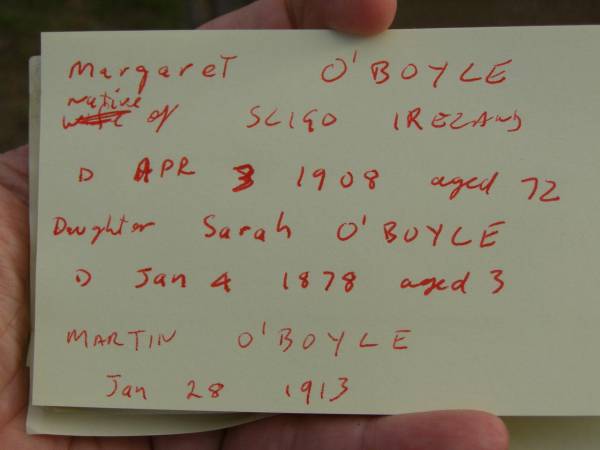 Margaret O'BOYLE
native of SLIGO IRELAND
D APR 3 1908 aged 72
Daughter Sarah O'BOYLE
D Jan 4 1878 aged 3
MARTIN O'BOYLE
Jan 28 1913